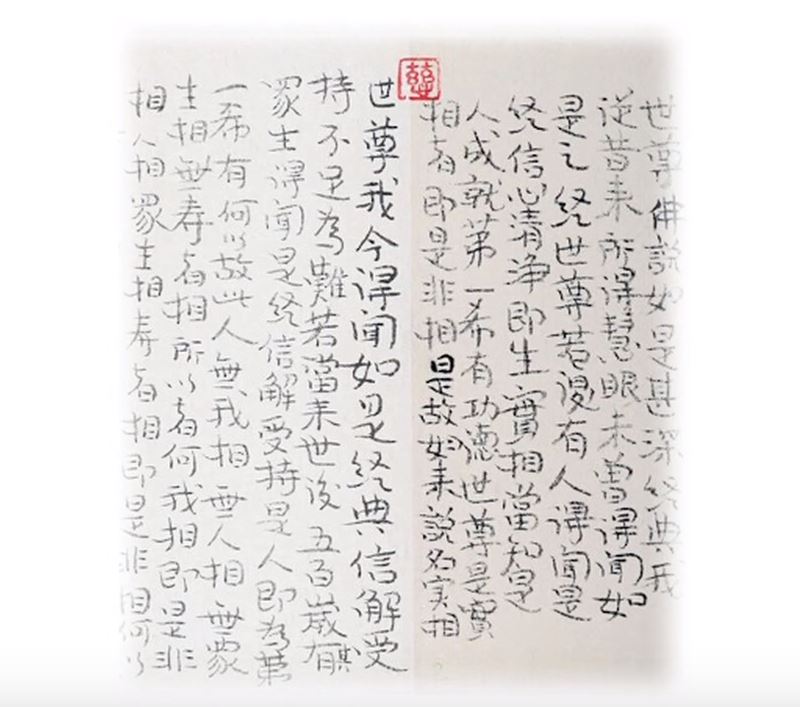 世尊佛說如是甚深經典我
從昔来所得慧眼未曾得聞如
是之經世尊若復有人得聞是
經信心清淨即生實相當知是
人成就第一希有功德世尊是實
相者即是非相是故如来說名实相
世尊我今得聞如是經典信解受
持不足為難若當来世後五百歲其有
眾生得聞是經信解受持是人即為第
一希有何以故此人無我相無人相無眾
生相無壽者相所以者何我相即是非
相人相眾生相壽者相即是非相何以